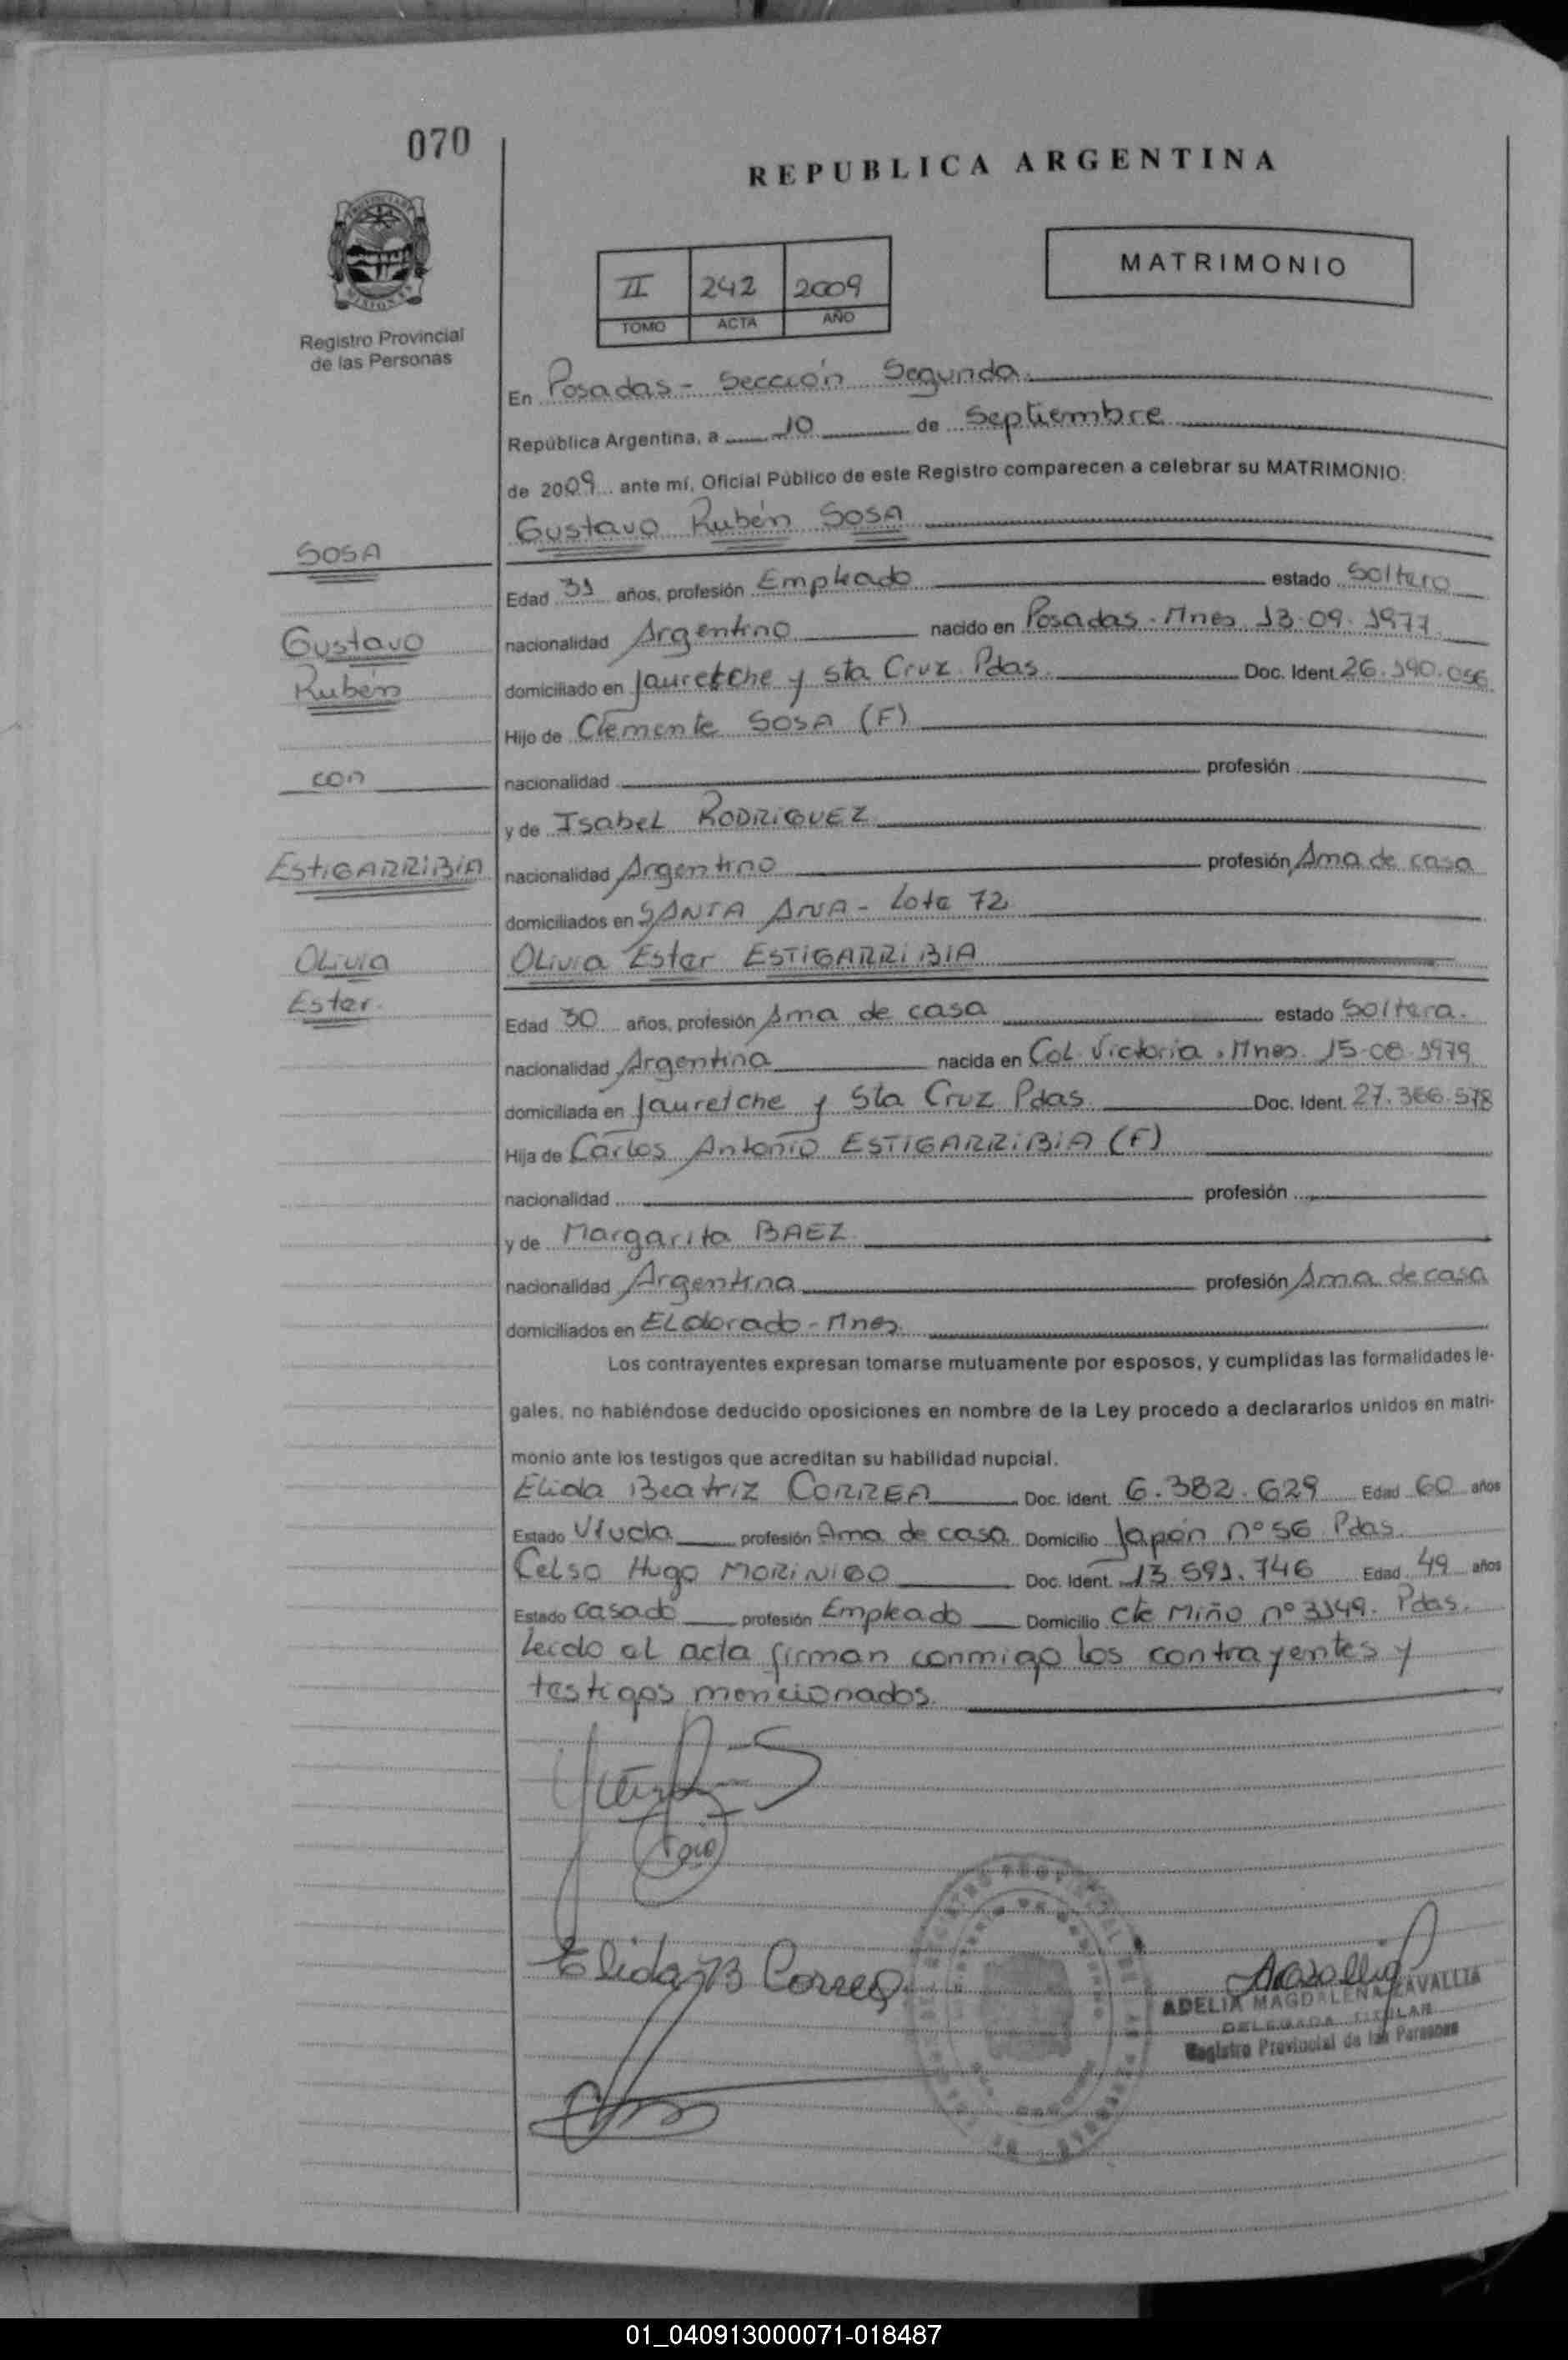 070
REPUBLICA ARGENTINA
MATRIMONIO
II 242 2009
TOMO ACTA AÑO
Registro Provincial
de las Personas
En Posadas - Sección Segunda
República Argentina, a 10 de Septiembre
de 2009 ante mí, Oficial Público de este Registro comparecen a celebrar su MATRIMONIO:
Gustavo Rubén SOSA
SOSA
Edad 31 años, profesión Empleado estado Soltero
Gustavo
nacionalidad Argentino nacido en Posadas - Mnes 13-09-1977
Rubén
domiciliado en Jauretche y Sta Cruz Pdas. Doc. Ident. 26.190.056
Hijo de Clemente SOSA (F)
con
nacionalidad profesión
y de Isabel RODRIGUEZ
ESTIGARRIBIA
nacionalidad Argentina profesión Ama de casa
domiciliados en SANTA ANA - Lote 72
Olivia
Olivia Ester ESTIGARRIBIA
Ester.
Edad 30 años, profesión Ama de casa estado Soltera.
nacionalidad Argentina nacida en Col. Victoria. Mnes. 15-08-1979
domiciliada en Jauretche y Sta Cruz Pdas. Doc. Ident. 27.366.578
Hija de Carlos Antonio ESTIGARRIBIA (F)
nacionalidad profesión
y de Margarita BAEZ
nacionalidad Argentina profesión Ama de casa
domiciliados en ELdorado - Mnes.
Los contrayentes expresan tomarse mutuamente por esposos, y cumplidas las formalidades le-
gales, no habiéndose deducido oposiciones en nombre de la Ley procedo a declararlos unidos en matri-
monio ante los testigos que acreditan su habilidad nupcial.
Elida Beatriz CORREA Doc. Ident. 6.382.629 Edad 60 años
Estado Viuda profesión Ama de casa Domicilio Japón nº 56 Pdas.
Celso Hugo MORINIGO Doc. Ident. 13.591.746 Edad 49 años
Estado casado profesión Empleado Domicilio Cte Miño nº 3149. Pdas.
Leido el acta firman conmigo los contrayentes y
testigos mencionados.
Elida B Correa
ADELIA MAGDALENA ZAVALLIA
DELEGADA TITULAR
Registro Provincial de las Personas
01_040913000071-018487